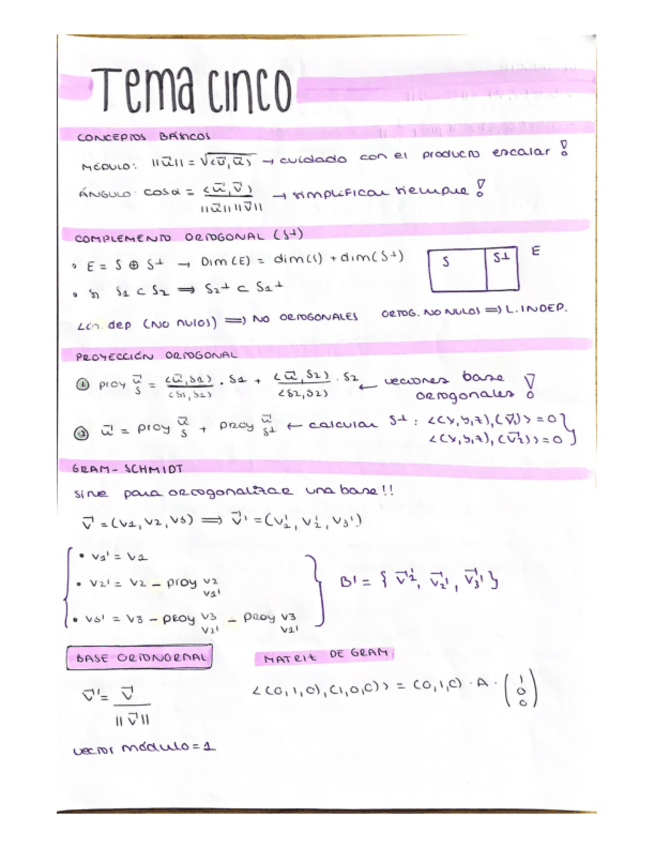 Tema cinco
CONCEPTOS BÁSICOS
MÓDULO: ||u⃗|| = √⟨u⃗,u⃗⟩ → cuidado con el producto escalar !
ÁNGULO: cosα = ⟨u⃗,v⃗⟩ / ||u⃗|| ||v⃗|| → simplificar siempre !
COMPLEMENTO ORTOGONAL (S⊥)
• E = S ⊕ S⊥ → Dim(E) = dim(S) + dim(S⊥)
S S⊥ E
• Si S1 ⊂ S2 ⟹ S2⊥ ⊂ S1⊥
Lin. dep (NO NULOS) ⟹ NO ORTOGONALES ORTOG. NO NULOS ⟹ L. INDEP.
PROYECCIÓN ORTOGONAL
① proy u⃗ S = ⟨u⃗,S1⟩ / ⟨S1,S1⟩ · S1 + ⟨u⃗,S2⟩ / ⟨S2,S2⟩ · S2 ← vectores base ortogonales !
② u⃗ = proy u⃗ S + proy u⃗ S⊥ ← calcular S⊥ : ⟨(x,y,z),(v⃗1)⟩ = 0
⟨(x,y,z),(v⃗2)⟩ = 0
GRAM-SCHMIDT
sirve para ortogonalizar una base!!
v⃗ = (v1, v2, v3) ⟹ v⃗' = (v1', v2', v3')
• v1' = v1
• v2' = v2 − proy v2 v1'
B' = { v⃗1', v⃗2', v⃗3' }
• v3' = v3 − proy v3 v2' − proy v3 v1'
BASE ORTONORMAL
MATRIZ DE GRAM
v⃗' = v⃗ / ||v⃗||
⟨(0,1,0),(1,0,0)⟩ = (0,1,0) · A · (1 0 0)
vector módulo = 1